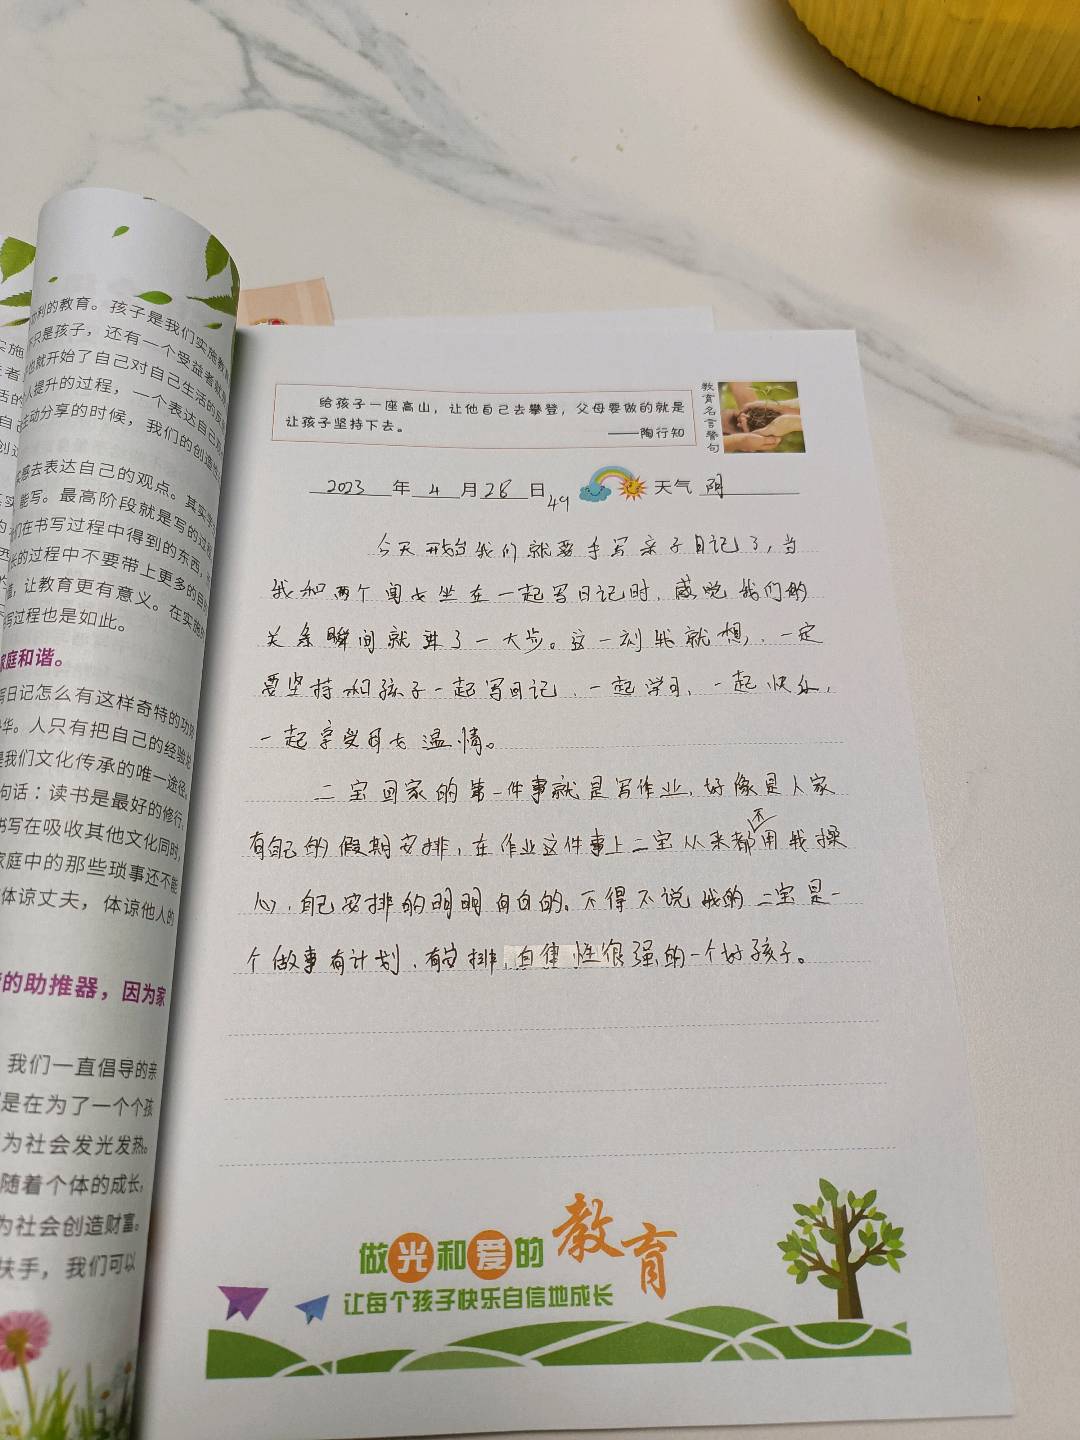 利的教育。孩子是我们实施教育
不只是孩子，还有一个受益者就
也就开始了自己对自己生活的反
人提升的过程，一个表达自己
主动分享的时候，我们的创造性
去表达自己的观点。其实
能写。最高阶段就是写的过
们在书写过程中得到的东西，
长的过程中不要带上更多的目的
，让教育更有意义。在实施的
写过程也是如此。
家庭和谐。
写日记怎么有这样奇特的功
华。人只有把自己的经验
是我们文化传承的唯一途径。
句话：读书是最好的修行，
书写在吸收其他文化同时，
家庭中的那些琐事还不能
体谅丈夫，体谅他人的
的助推器，因为家
我们一直倡导的亲
是在为了一个个孩
为社会发光发热。
随着个体的成长，
为社会创造财富。
扶手，我们可以
给孩子一座高山，让他自己去攀登，父母要做的就是
让孩子坚持下去。
——陶行知
教育名言警句
2023年4月28日49 天气 阴
今天开始我们就要手写亲子日记了，当
我和两个闺女坐在一起写日记时，感觉我们的
关系瞬间就进了一大步。这一刻我就想，一定
要坚持和孩子一起写日记、一起学习、一起快乐，
一起享受母女温情。
二宝回家的第一件事就是写作业，好像是人家
有自己的假期安排，在作业这件事上二宝从来都不用我操
心，自己安排的明明白白的。不得不说我的二宝是一
个做事有计划，有安排，自律性很强的一个好孩子。
做光和爱的教育
让每个孩子快乐自信地成长